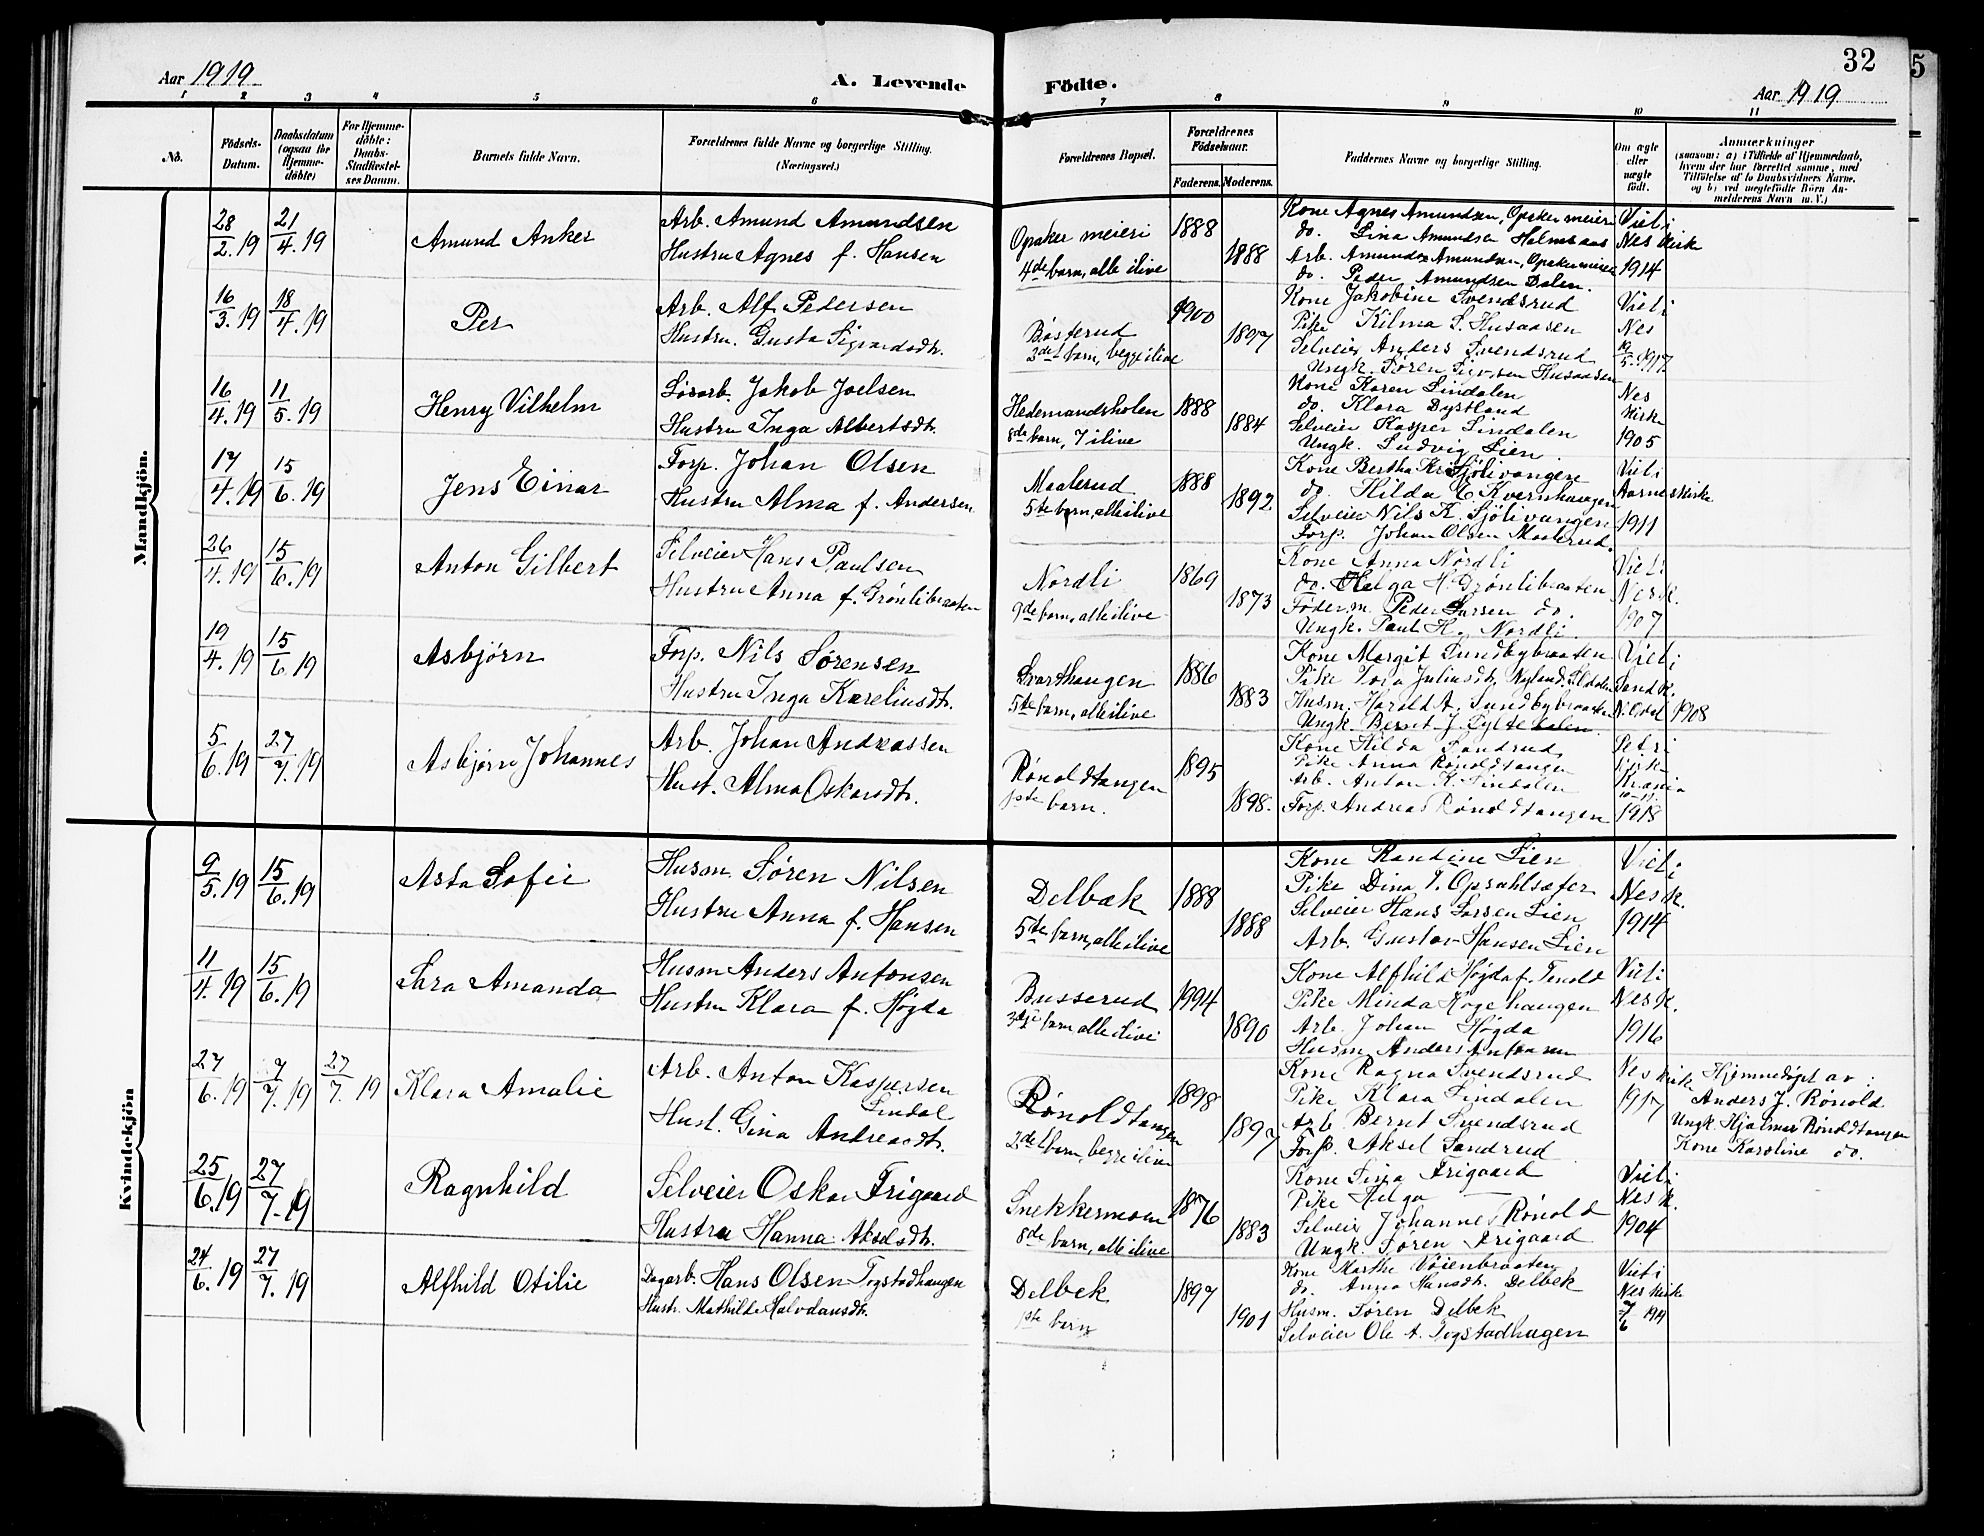 Aar 1919
A. Levende
Födte.
32
Aar 1919
1 2 3 4 5 6 7 8 9 10 11
No.
Födsels-Datum.
Daabsdatum (ogsaa for Hjemme-döbte)
For Hjemme-döbte: Daabs-Stadfæstel-ses Datum.
Barnets fulde Navn.
Forældrenes fulde Navne og borgerlige Stilling. (Næringsvei.)
Forældrenes Bopæl.
Forældrenes Födselsaar.
Faderens. Moderens.
Faddernes Navne og borgerlige Stilling.
Om ægte eller uægte födt.
Anmærkninger (saasom: a) i Tilfælde af Hjemmedaab, hvem der har forrettet samme, med Tilföielse af to Daabsvidners Navne, og b) ved uægtefödte Börn An-melderens Navn m. V.)
Mandkjön.
28/2.19 21/4.19 Amund Anker
Arb. Amund Amundsen
Hustru Agnes f. Hansen
Opaker meieri
4de barn, alle ilive
1888
1888
Kone Agnes Amundsen, Opaker meieri
do. Lina Amundsen Holmsaas
Arb. Amund Amundsen, Opaker meieri
do. Peder Amundsen Dalen.
Viet i
Nes kirk
1914
16/3.19 18/4.19 Per
Arb. Alf Pedersen
Hustru. Gusta Sigvardsdtr.
Bøsterud
3de barn, begge ilive
1900
1897
Kone Jakobine Svendsrud
Pike Hilma S. Husaasen
Selveier Anders Svendsrud
Ungk. Søren Husaasen
Viet i
Nes
1917
16/4.19 11/5.19 Henry Vilhelm
Jakob Joelsen
Hustru Inga Albertsdtr.
Hedemandsholen
8de barn, 7 ilive
1888
1884
Kone Karen Lindalen
do. Klara Dystland
Selveier Kasper Lindalen
Ungk. Ludvig Lien
Nes
kirke
1905
17/4.19 15/6.19 Jens Einar
Forp. Johan Olsen
Hustru Alma f. Andersen
Maalerud
5te barn, alle ilive
1888
1892.
Kone Bertha Kr. Sjølivangen
do. Hilda E. Kvernhaugen
Selveier Nils K. Sjølivangen
Forp. Johan Olsen Maalerud.
Viet i
Aarnes kirke
1911
26/4.19 15/6.19 Anton Gilbert
Selveier Hans Paulsen
Hustru Anna f. Grønlibraaten
Nordli
9de barn, alle ilive
1869
1873
Kone Anna Nordli
do. Helga H. Grønlibraaten
Føderm. Peder Larsen do.
Ungk. Paul H. Nordli
Viet i
Nes k.
1907
19/4.19 15/6.19 Asbjørn
Forp. Nils Sørensen
Hustru Inga Kareliusdtr.
Svarthaugen
5te barn, alle ilive
1886
1883
Kone Margit Sundbybraaten
Pike Juliusdtr. Nyland
Husm. Harald A. Sundbybraaten
Ungk. Bernt J.
Viet i
Sand k.
N. Odal 1908
5/6.19 27/7.19 Asbjørn Johannes
Arb. Johan Andreassen
Hust. Alma Oskarsdtr.
Rønoldtangen
1ste barn.
1895
1898.
Kone Hilda Sandrud
Pike Anna Rønoldtangen
Arb. Anton K. Lindalen
Forp. Andreas Rønoldtangen
Petri
kirke
Krania
1918
Kvindekjön
9/5.19 15/6.19 Asta Sofie
Husm. Søren Nilsen
Hustru Anna f. Hansen
Delbæk
5te barn, alle ilive
1888
1888
Kone Randine Lien
Pike Dina T. Opsahlsæter
Selveier Hans Larsen Lien
Arb. Gustav Hansen Lien
Viet i
Nes k.
1914
11/4.19 15/6.19 Sara Amanda
Husm Anders Antonsen
Hustru Klara f. Høgda
Busserud
3dje barn alle ilive
1894
1890
Kone Alfhild Høgda f.
Pike Minda Hagehaugen
Arb. Johan Høgda
Husm Anders Antonsen
Viet i
Nes k.
1916
27/6.19 7/7.19 27/7.19 Klara Amalie
Arb. Anton Kaspersen
Lindal
Hust. Gina Andreasdtr.
Rønoldtangen
2det barn, begge ilive
1898
1897
Kone Ragna Svendsrud
Pike Klara Lindalen
Arb. Bernt Svendsrud
Forp. Aksel Sandrud
Nes kirke
1917
Hjemmedøpt av:
Anders J. Rønold
Ungk. Hjalmar Rønoldtangen
Kone Karoline do.
25/6.19 27/7.19 Ragnhild
Selveier Oskar Frigaard
Hustru Hanna Akselsdtr.
Snekkermoen
8de barn, alle ilive
1876
1883
Kone Frigaard
Pike Helga —
Selveier Johannes Rønold
Ungk. Søren Frigaard
Viet i
Nes k.
1904
24/6.19 27/7.19 Alfhild Otilie
Dagarb. Hans Olsen Togstadhaugen
Hustr. Mathilde Halvdansdtr.
Delbek
1ste barn
1897
1901
Kone Marthe Vøienbraaten
do. Hansdtr. Delbek
Husm. Søren Delbek
Selveier Ole A. Togstadhagen
Viet i
Nes kirke
7/6